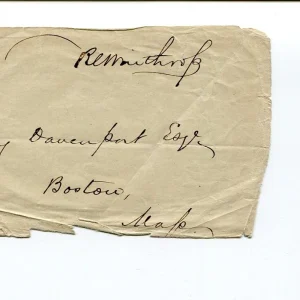 RCWinthrop
y Davenport Esqr
Boston,
Mass